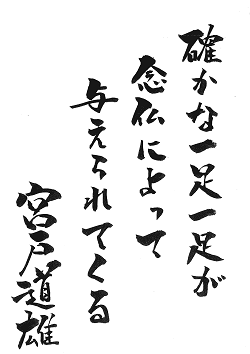 確かな一足一足が
念仏によって
与えられてくる
宮戸道雄